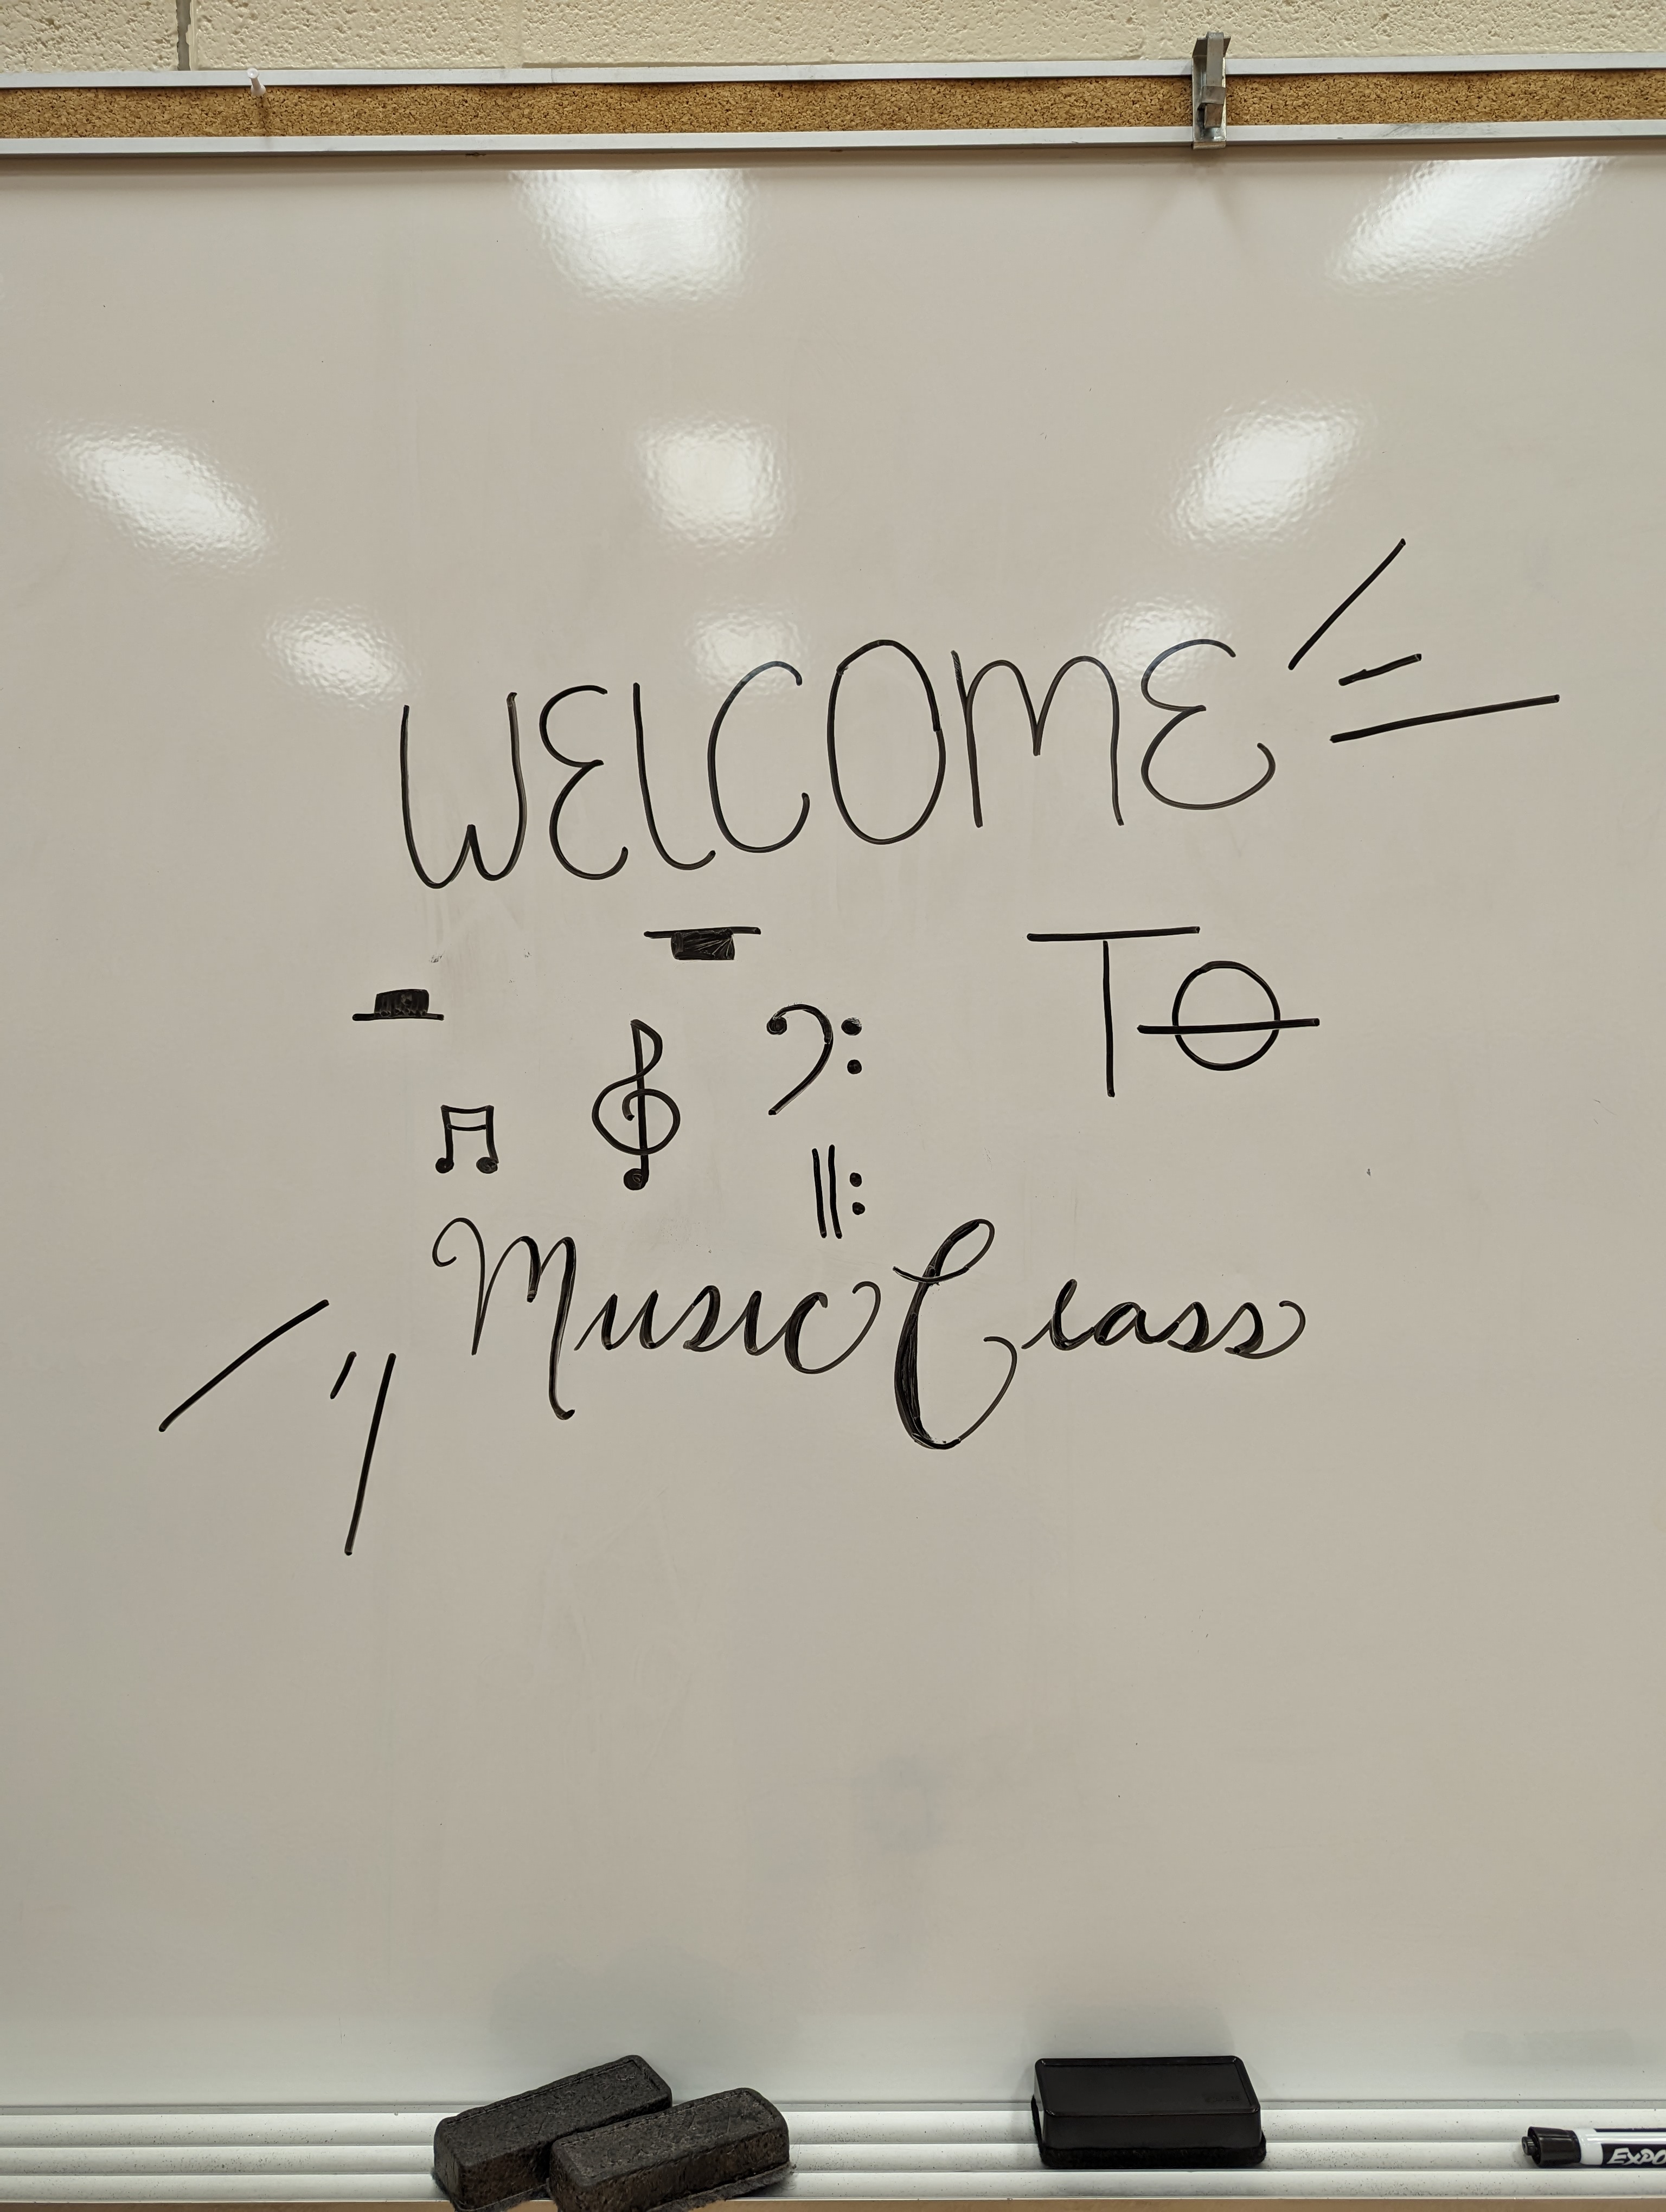 WELCOME
TO
Music Class
EXPO